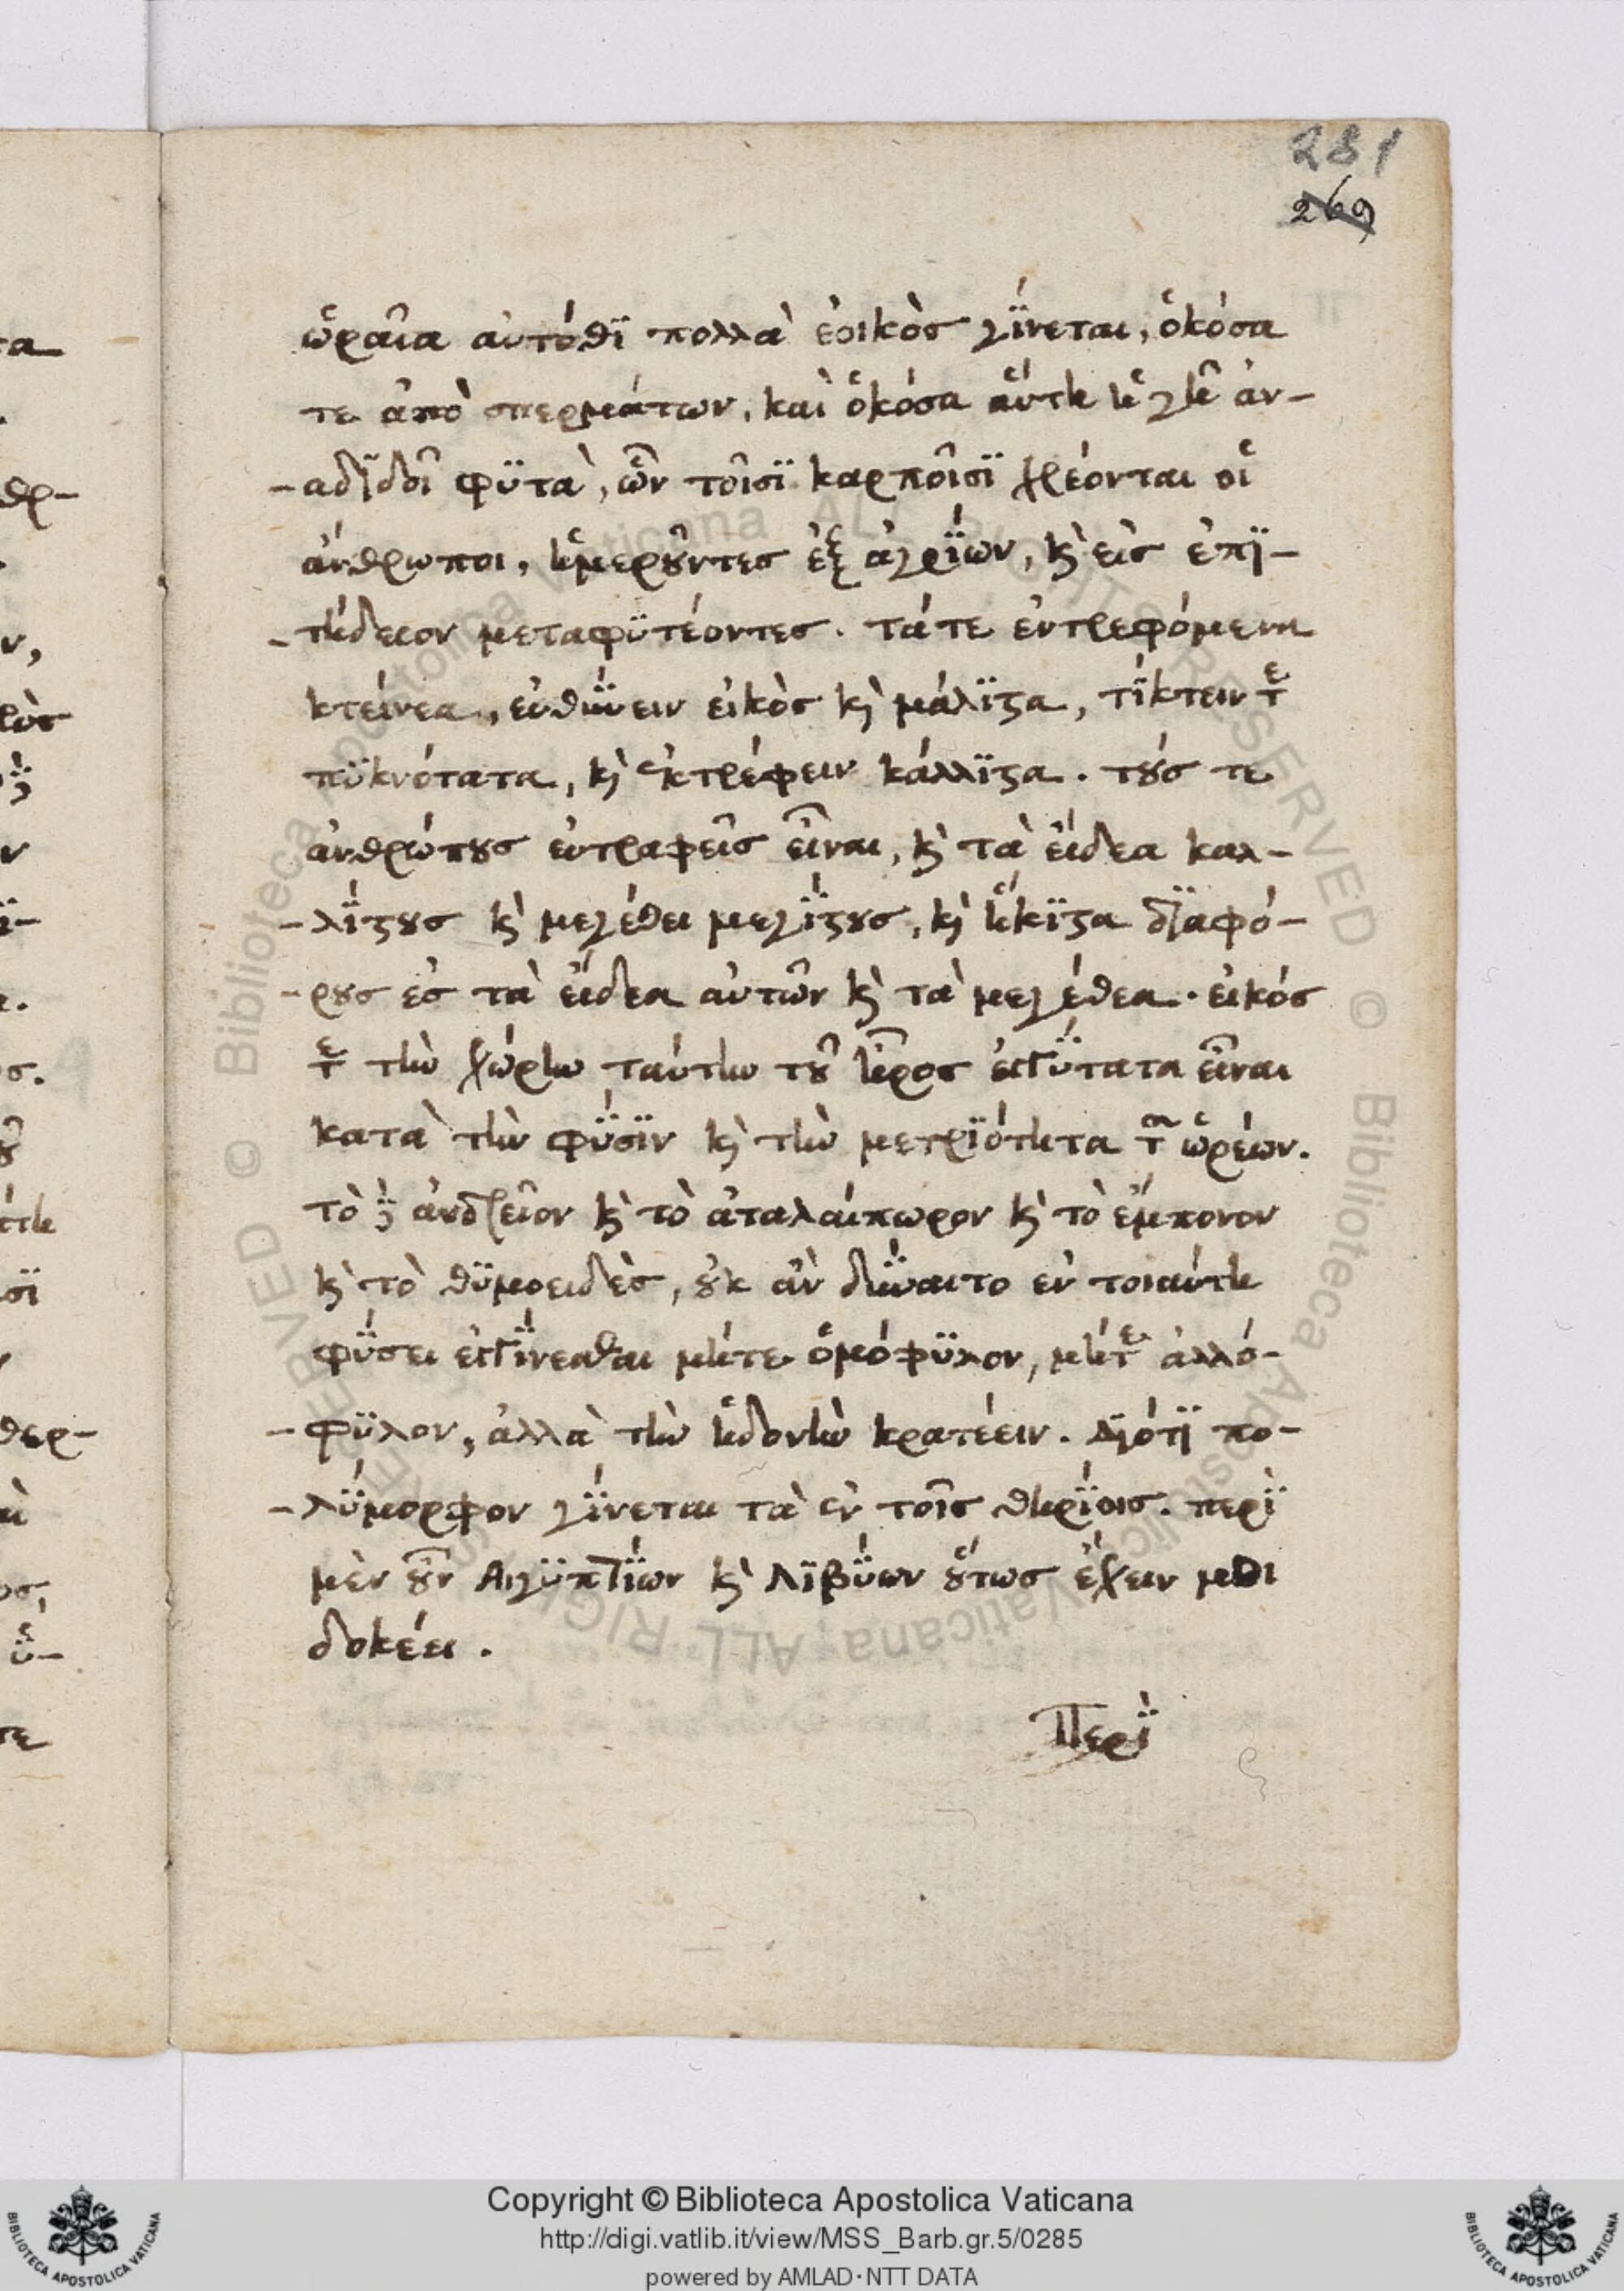 281
269
ὡραῖα αὐτόθϊ πολλὰ ἐοικὸς γΐνεται, ὁκόσα
τε ἀπὸ σπερμάτων, καὶ ὁκόσα αὕτη ἡ γῆ ἀν-
-αδϊδοῖ φϋτὰ, ὧν τοῖσϊ καρποῖσϊ χρέονται οἱ
ἄνθρωποι, ἡμεροῦντες ἐξ ἀγρΐων, κὶ εἰς ἐπϊ-
-τήδειον μεταφϋτέοντες. τάτε ἐντρεφόμενα
κτείνεα, εὐθΰνειν εἰκὸς κὶ μάλϊστα, τΐκτειν τε
πϋκνότατα, κὶ ἐκτρέφειν κάλλϊστα. τούς τε
ἀνθρώπους εὐτραφεῖς εἶναι, κὶ τὰ εἴδεα καλ-
-λΐστους κὶ μεγέθει μεγΐστους, κὶ ἥκϊστα δϊαφό-
-ρους ἐς τὰ εἴδεα αὐτῶν κὶ τὰ μεγέθεα. εἰκός
τε τὴν χώρην ταύτην τοῦ ἦρος ἐγγΰτατα εἶναι
κατὰ τὴν φΰσϊν κὶ τὴν μετρϊότητα τῶν ὡρέων.
τὸ δὲ ἀνδρεῖον κὶ τὸ ἀταλαίπωρον κὶ τὸ ἔμπονον
κὶ τὸ θϋμοειδὲς, οὐκ ἂν δΰναιτο ἐν τοιαύτη
φΰσει ἐγγΐνεσθαι μήτε ὁμόφϋλον, μήτε ἀλλό-
-φϋλον, ἀλλὰ τὴν ἡδονὴν κρατέειν. Δϊότϊ πο-
-λΰμορφον γΐνεται τὰ ἐν τοῖς θηρΐοις. περϊ
μὲν οὖν Αἰγϋπτΐων κὶ Λϊβΰων οὕτως ἔχειν μοι
δοκέει.
Περῒ
Copyright © Biblioteca Apostolica Vaticana
http://digi.vatlib.it/view/MSS_Barb.gr.5/0285
powered by AMLAD·NTT DATA